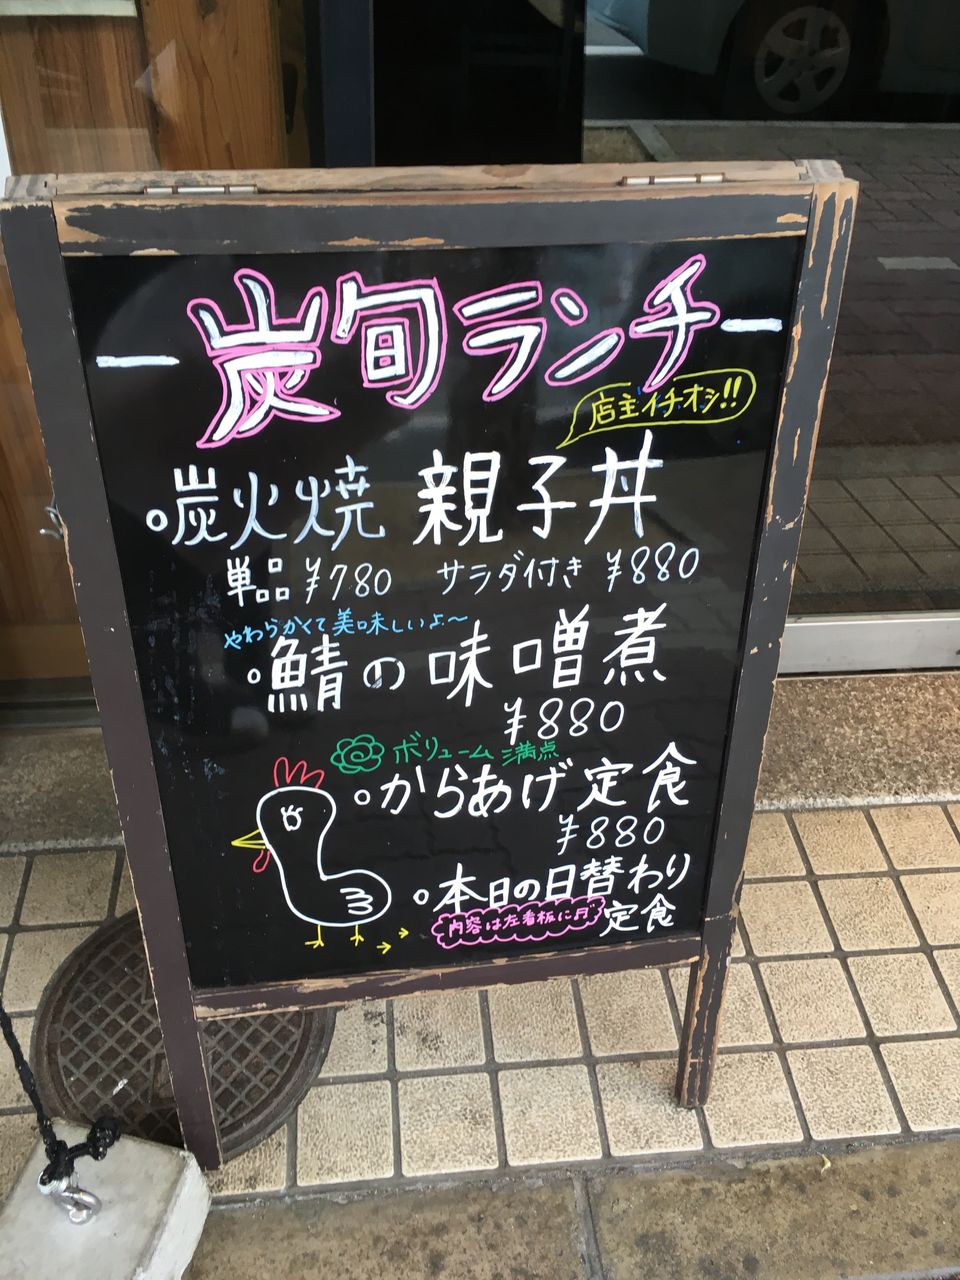 炭旬ランチ
店主イチオシ!!
炭火焼 親子丼
単品 ¥780 サラダ付き ¥880
やわらかくて美味しいよ〜
鯖の味噌煮
¥880
ボリューム満点
からあげ定食
¥880
本日の日替わり
定食
内容は左看板に